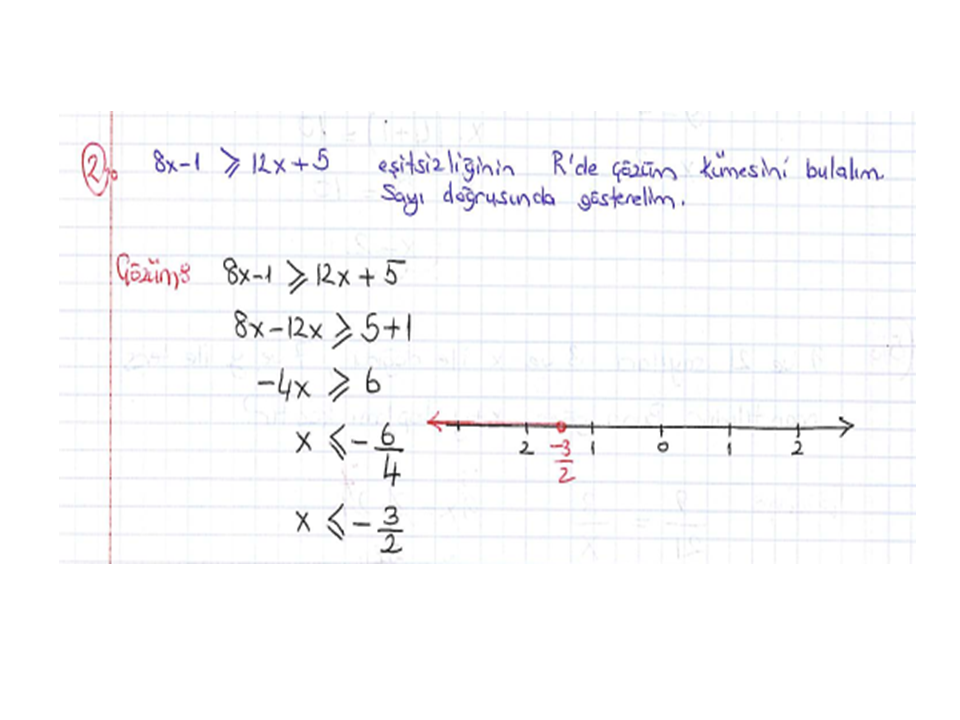 2. 8x-1 ⩾ 12x+5 eşitsizliğinin R'de çözüm kümesini bulalım.
Sayı doğrusunda gösterelim.
Çözüm: 8x-1 ⩾ 12x+5
8x-12x ⩾ 5+1
-4x ⩾ 6
x ⩽ -6/4
2 -3/2 1 0 1 2
x ⩽ -3/2